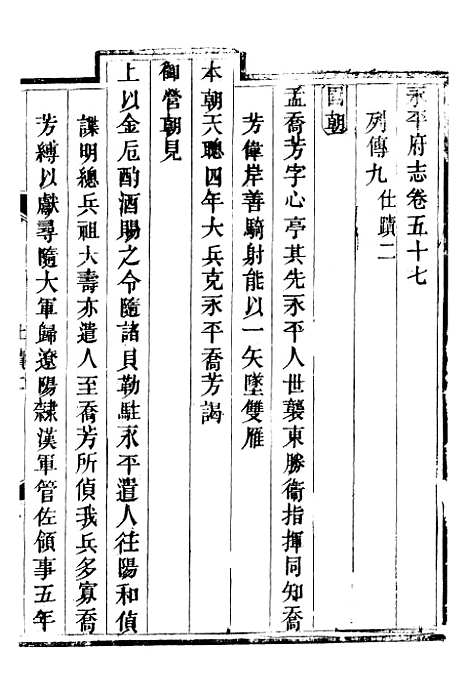 永平府志卷五十七
列傳九 仕蹟二
國朝
孟喬芳字心亭其先永平人世襲東勝衞指揮同知喬
芳偉岸善騎射能以一矢墜雙雁
本朝天聰四年大兵克永平喬芳謁
御營朝見
上以金卮酌酒賜之令隨諸貝勒駐永平遣人往陽和偵
諜明總兵祖大壽亦遣人至喬芳所偵我兵多寡喬
芳縛以獻尋隨大軍歸遼陽隸漢軍管佐領事五年